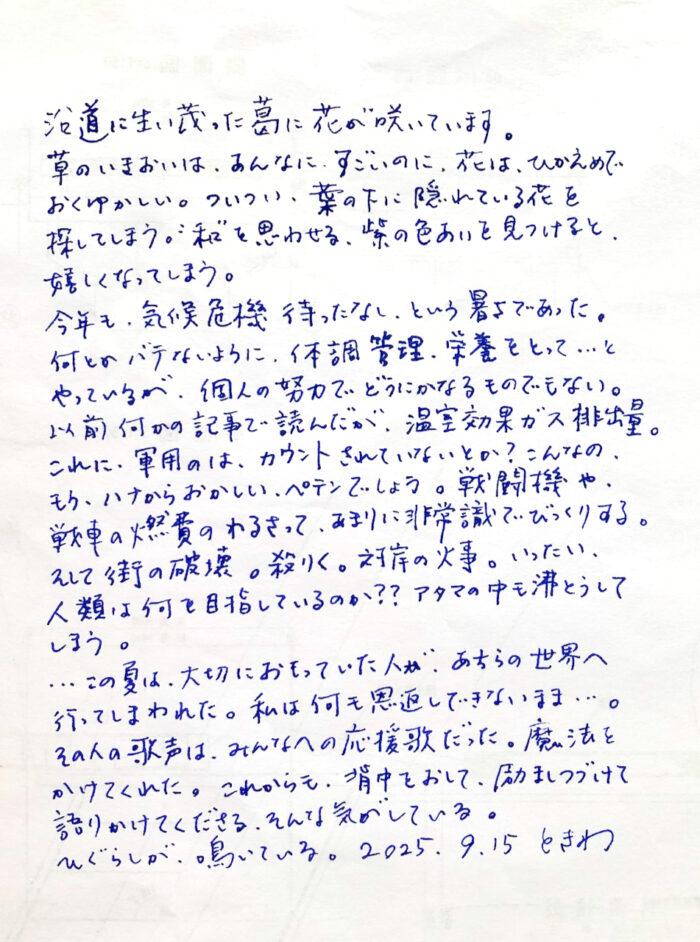 沿道に生い茂った葛に花が咲いています。
草のいきおいは、あんなに、すごいのに、花は、ひかえめで
おくゆかしい。ついつい、葉の下に隠れている花を
探してしまう。"和"を思わせる、紫の色あいを見つけると、
嬉しくなってしまう。
今年も、気候危機待ったなし、という暑さであった。
何とかバテないように、体調管理、栄養をとって…と
やっているが、個人の努力でどうにかなるものでもない。
以前何かの記事で読んだが、温室効果ガス排出量。
これに、軍用のは、カウントされていないとか?こんなの、
もう、ハナからおかしい、ペテンでしょう。戦闘機や、
戦車の燃費のわるさって、あまりに非常識でびっくりする。
そして街の破壊。殺りく。対岸の火事。いったい、
人類は何を目指しているのか??アタマの中も沸とうして
しまう。
…この夏は、大切におもっていた人が、あちらの世界へ
行ってしまわれた。私は何も恩返しできないまま…。
その人の歌声は、みんなへの応援歌だった。魔法を
かけてくれた。これからも、背中をおして、励ましつづけて
語りかけてくださる、そんな気がしている。
ひぐらしが、鳴いている。2025.9.15 ときわ